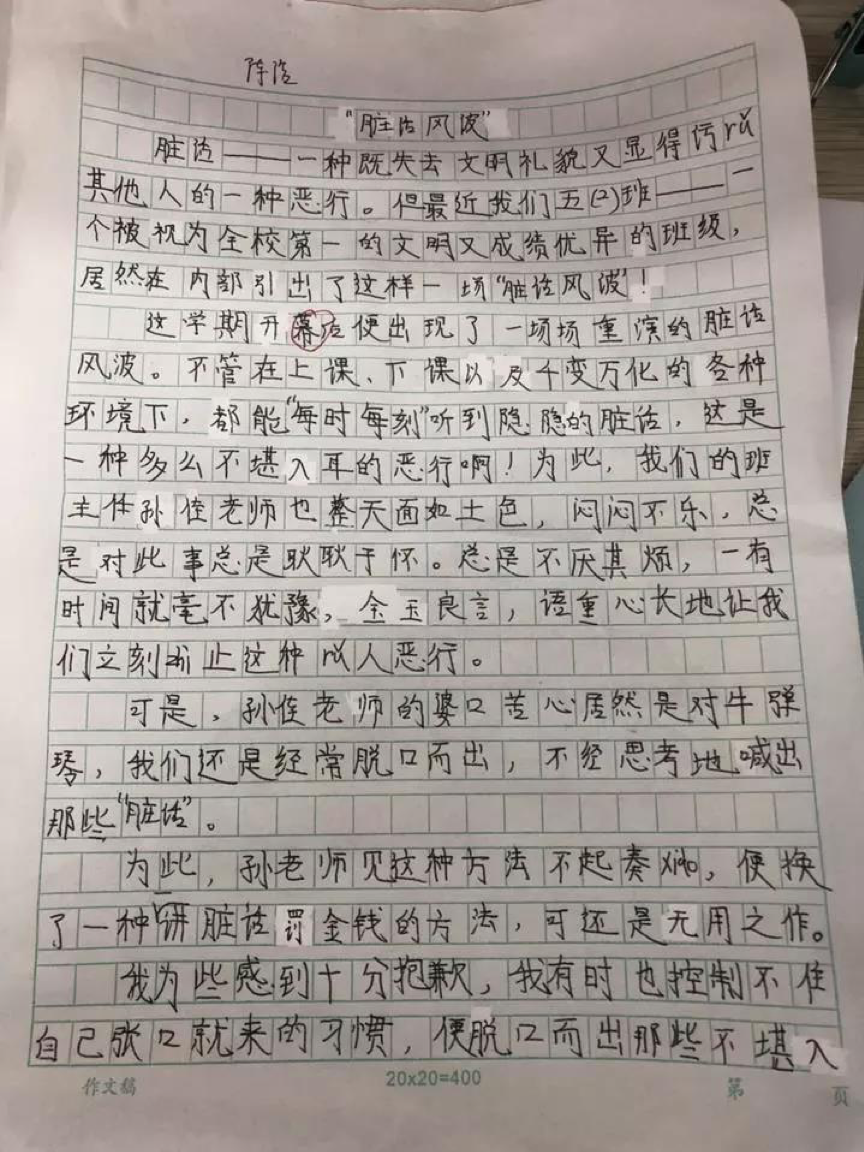 陈浩
“脏话风波”
脏话——一种既失去文明礼貌又显得污rǔ
其他人的一种恶行。但最近我们五(2)班——一
个被视为全校第一的文明又成绩优异的班级，
居然在内部引出了这样一场“脏话风波”！
这学期开幕后便出现了一场场重演的脏话
风波。不管在上课、下课以及千变万化的各种
环境下，都能“每时每刻”听到隐隐的脏话，这是
一种多么不堪入耳的恶行啊！为此，我们的班
主任孙佳老师也整天面如土色，闷闷不乐，总
是对此事总是耿耿于怀。总是不厌其烦，一有
时间就毫不犹豫，金玉良言，语重心长地让我
们立刻zhǐ止这种rǔ人恶行。
可是，孙佳老师的婆口苦心居然是对牛弹
琴，我们还是经常脱口而出，不经思考地喊出
那些“脏话”。
为此，孙老师见这种方法不起奏xiào，便换
了一种讲脏话罚金钱的方法，可还是无用之作。
我为些感到十分抱歉，我有时也控制不住
自己张口就来的习惯，便脱口而出那些不堪入
作文稿
20x20=400
第 页